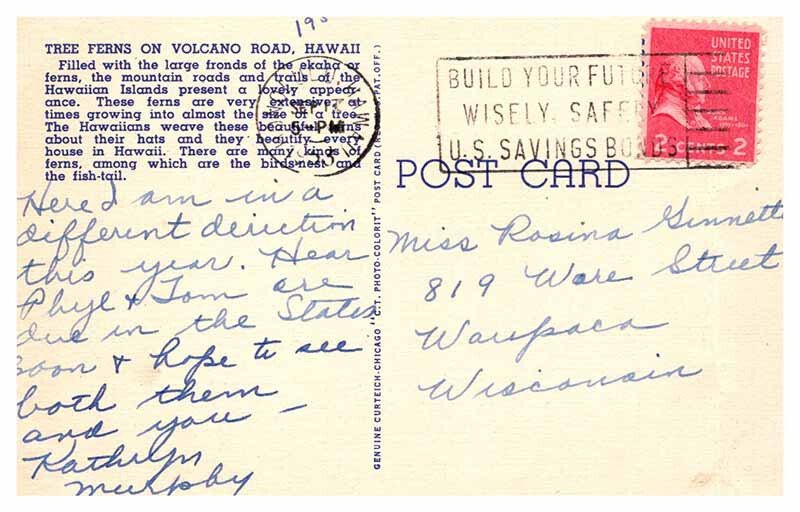 190
TREE FERNS ON VOLCANO ROAD, HAWAII
Filled with the large fronds of the ekaha or
ferns, the mountain roads and trails of the
Hawaiian Islands present a lovely appear-
ance. These ferns are very extensive, at
times growing into almost the size of a tree.
The Hawaiians weave these beautiful ferns
about their hats and they beautify every
house in Hawaii. There are many kinds of
ferns, among which are the birdsnest and
the fish-tail.
Here I am in a
different direction
this year. Hear
Phyl & Tom are
due in the States
soon & hope to see
both them
and you –
Kathryn
Murphy
GENUINE CURTEICH-CHICAGO "C.T. PHOTO-COLORIT" POST CARD (REG. U.S. PAT. OFF.)
SEP 17
5 - PM
BUILD YOUR FUTURE
WISELY, SAFELY
U.S. SAVINGS BONDS
UNITED
STATES
POSTAGE
ADAMS
CENTS 2
POST CARD
Miss Rosina Ginnette
819 Ware Street
Waupaca
Wisconsin